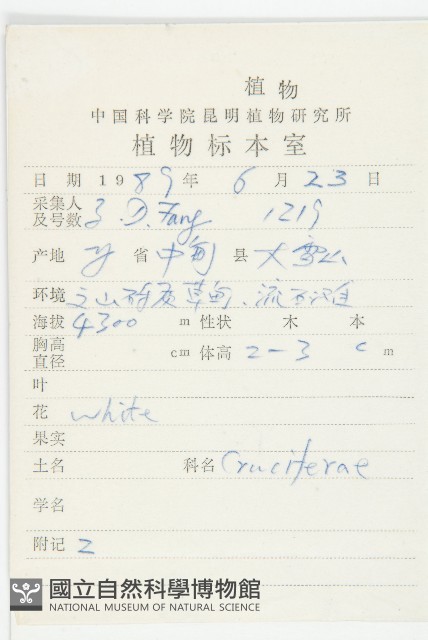 植物
中国科学院昆明植物研究所
植物标本室
日 期 1989年 6月 23日
采集人
及号数 D. Fang 1219
产地 省 中甸 县 大雪山
环境 高山 草甸、流石滩
海拔 4300 m 性状 木 本
胸高
直径 cm 体高 2-3 cm
叶
花 white
果实
土名 科名 Cruciferae
学名
附记 2
國立自然科學博物館
NATIONAL MUSEUM OF NATURAL SCIENCE